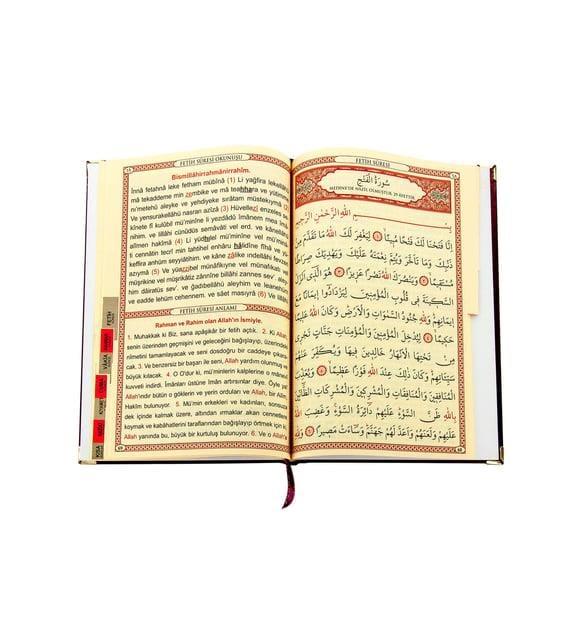 FETİH SÛRESİ OKUNUŞU
Bismillâhirrahmânirrahîm.
İnnâ fetahnâ leke fetham mübînâ (1) Li yağfira lekellâhü
mâ tekaddeme min zembike ve mâ teahhara ve yütimm
ni'metehû aleyke ve yehdiyeke sırâtam müstekıymâ (2)
Ve yensurakellâhü nasran azîzâ (3) Hüvellezî enzeles se
kînete fî kulûbil mü'minîne li yezdâdû îmânem mea îmâ
nihim. ve lillâhi cünûdüs semâvâti vel erd. ve kânellâhü
alîmen hakîmâ (4) Li yüdhılel mü'minîne vel mü'minâ
ti cennâtin tecrî min tahtihel enhâru hâlidîne fîhâ ve yü
keffira anhüm seyyiâtihim. ve kâne zâlike ındellâhi fevzen
azıymâ (5) Ve yüazzibel münâfikıyne vel münâfikati vel
müşrikîne vel müşrikâtiz zânnîne billâhi zannes sev'. aley
him dâiratüs sev'. ve ğadıbellâhü aleyhim ve leanehüm
ve eadde lehüm cehennem. ve sâet masıyrâ (6) Ve lillâhi
FETİH SÛRESİ ANLAMI
Rahman ve Rahim olan Allah'ın İsmiyle.
1. Muhakkak ki Biz, sana apaşikâr bir fetih açtık. 2. Ki Allah
senin üzerinden geçmişini ve geleceğini bağışlayıp, üzerindeki
nîmetini tamamlayacak ve seni dosdoğru bir caddeye çıkara-
cak. 3. Ve benzersiz bir başarı ile seni, Allah yardım olunmaz
büyük kılacak. 4. O O'dur ki, mü'minlerin kalplerine o mânevî
kuvveti indirdi. İmânları üstüne imân artırsınlar diye. Öyle ya!
Allah'ındır bütün o göklerin ve yerin orduları ve Allah, bir Alîm
Hakîm bulunuyor. 5. Mü'min erkek ve kadınları, sonsuza
dek içinde kalmak üzere, altından ırmaklar akan cennetlere
koymak ve kabâhatlerini taraflarından bağışlayıp örtmek için ki
Allah yanında bu, büyük bir kurtuluş bulunuyor. 6. Ve o Allah'a
69
FETİH
VÂKIA
FETİH SÛRESİ
سُورَةُ الْفَتْحِ
MEDİNE'DE NAZİL OLMUŞTUR. 29 AYETTİR.
بِسْمِ اللّٰهِ الرَّحْمٰنِ الرَّحِيمِ
اِنَّا فَتَحْنَا لَكَ فَتْحًا مُبِينًا ﴿١﴾ لِيَغْفِرَ لَكَ اللّٰهُ مَا تَقَدَّمَ مِنْ
ذَنْبِكَ وَمَا تَاَخَّرَ وَيُتِمَّ نِعْمَتَهُ عَلَيْكَ وَيَهْدِيَكَ صِرَاطًا
مُسْتَقِيمًا ﴿٢﴾ وَيَنْصُرَكَ اللّٰهُ نَصْرًا عَزِيزًا ﴿٣﴾ هُوَ الَّذِى اَنْزَلَ
السَّكِينَةَ فِى قُلُوبِ الْمُؤْمِنِينَ لِيَزْدَادُوا اِيمَانًا مَعَ
اِيمَانِهِمْ وَلِلّٰهِ جُنُودُ السَّمٰوَاتِ وَالْاَرْضِ وَكَانَ اللّٰهُ عَلِيمًا
حَكِيمًا ﴿٤﴾ لِيُدْخِلَ الْمُؤْمِنِينَ وَالْمُؤْمِنَاتِ جَنَّاتٍ تَجْرِى
مِنْ تَحْتِهَا الْاَنْهَارُ خَالِدِينَ فِيهَا وَيُكَفِّرَ عَنْهُمْ
سَيِّاٰتِهِمْ وَكَانَ ذٰلِكَ عِنْدَ اللّٰهِ فَوْزًا عَظِيمًا ﴿٥﴾ وَيُعَذِّبَ
الْمُنَافِقِينَ وَالْمُنَافِقَاتِ وَالْمُشْرِكِينَ وَالْمُشْرِكَاتِ الظَّانِّينَ
بِاللّٰهِ ظَنَّ السَّوْءِ عَلَيْهِمْ دَائِرَةُ السَّوْءِ وَغَضِبَ اللّٰهُ
عَلَيْهِمْ وَلَعَنَهُمْ وَاَعَدَّ لَهُمْ جَهَنَّمَ وَسَاءَتْ مَصِيرًا ﴿٦﴾
68